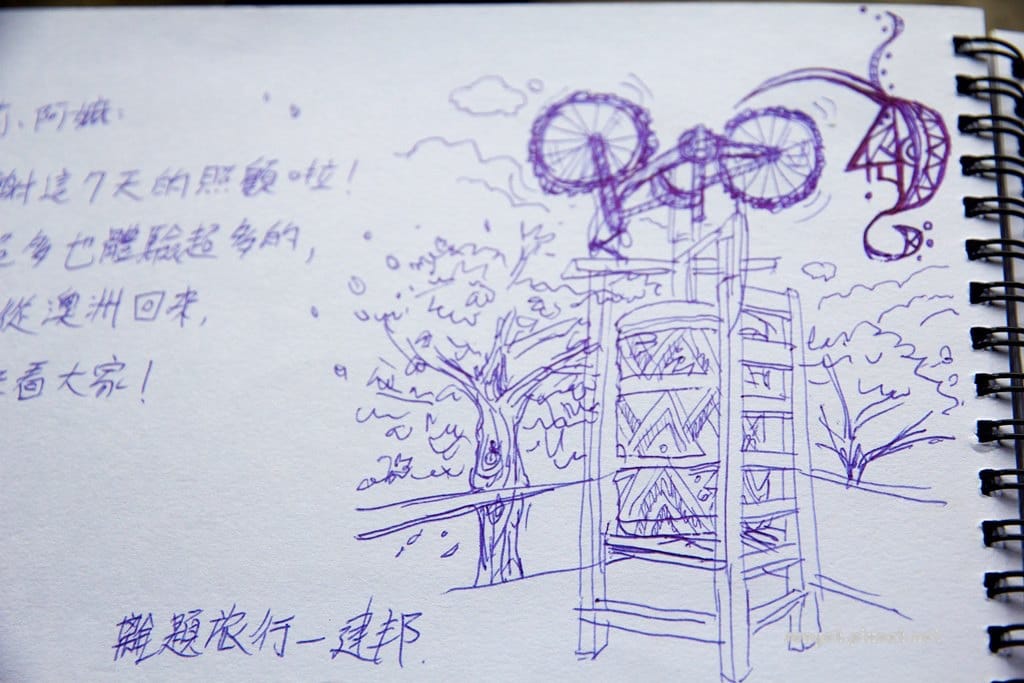 、阿嬤:
謝這7天的照顧啦!
超多也體驗超多的,
從澳洲回來,
看大家!
難題旅行—建邦.